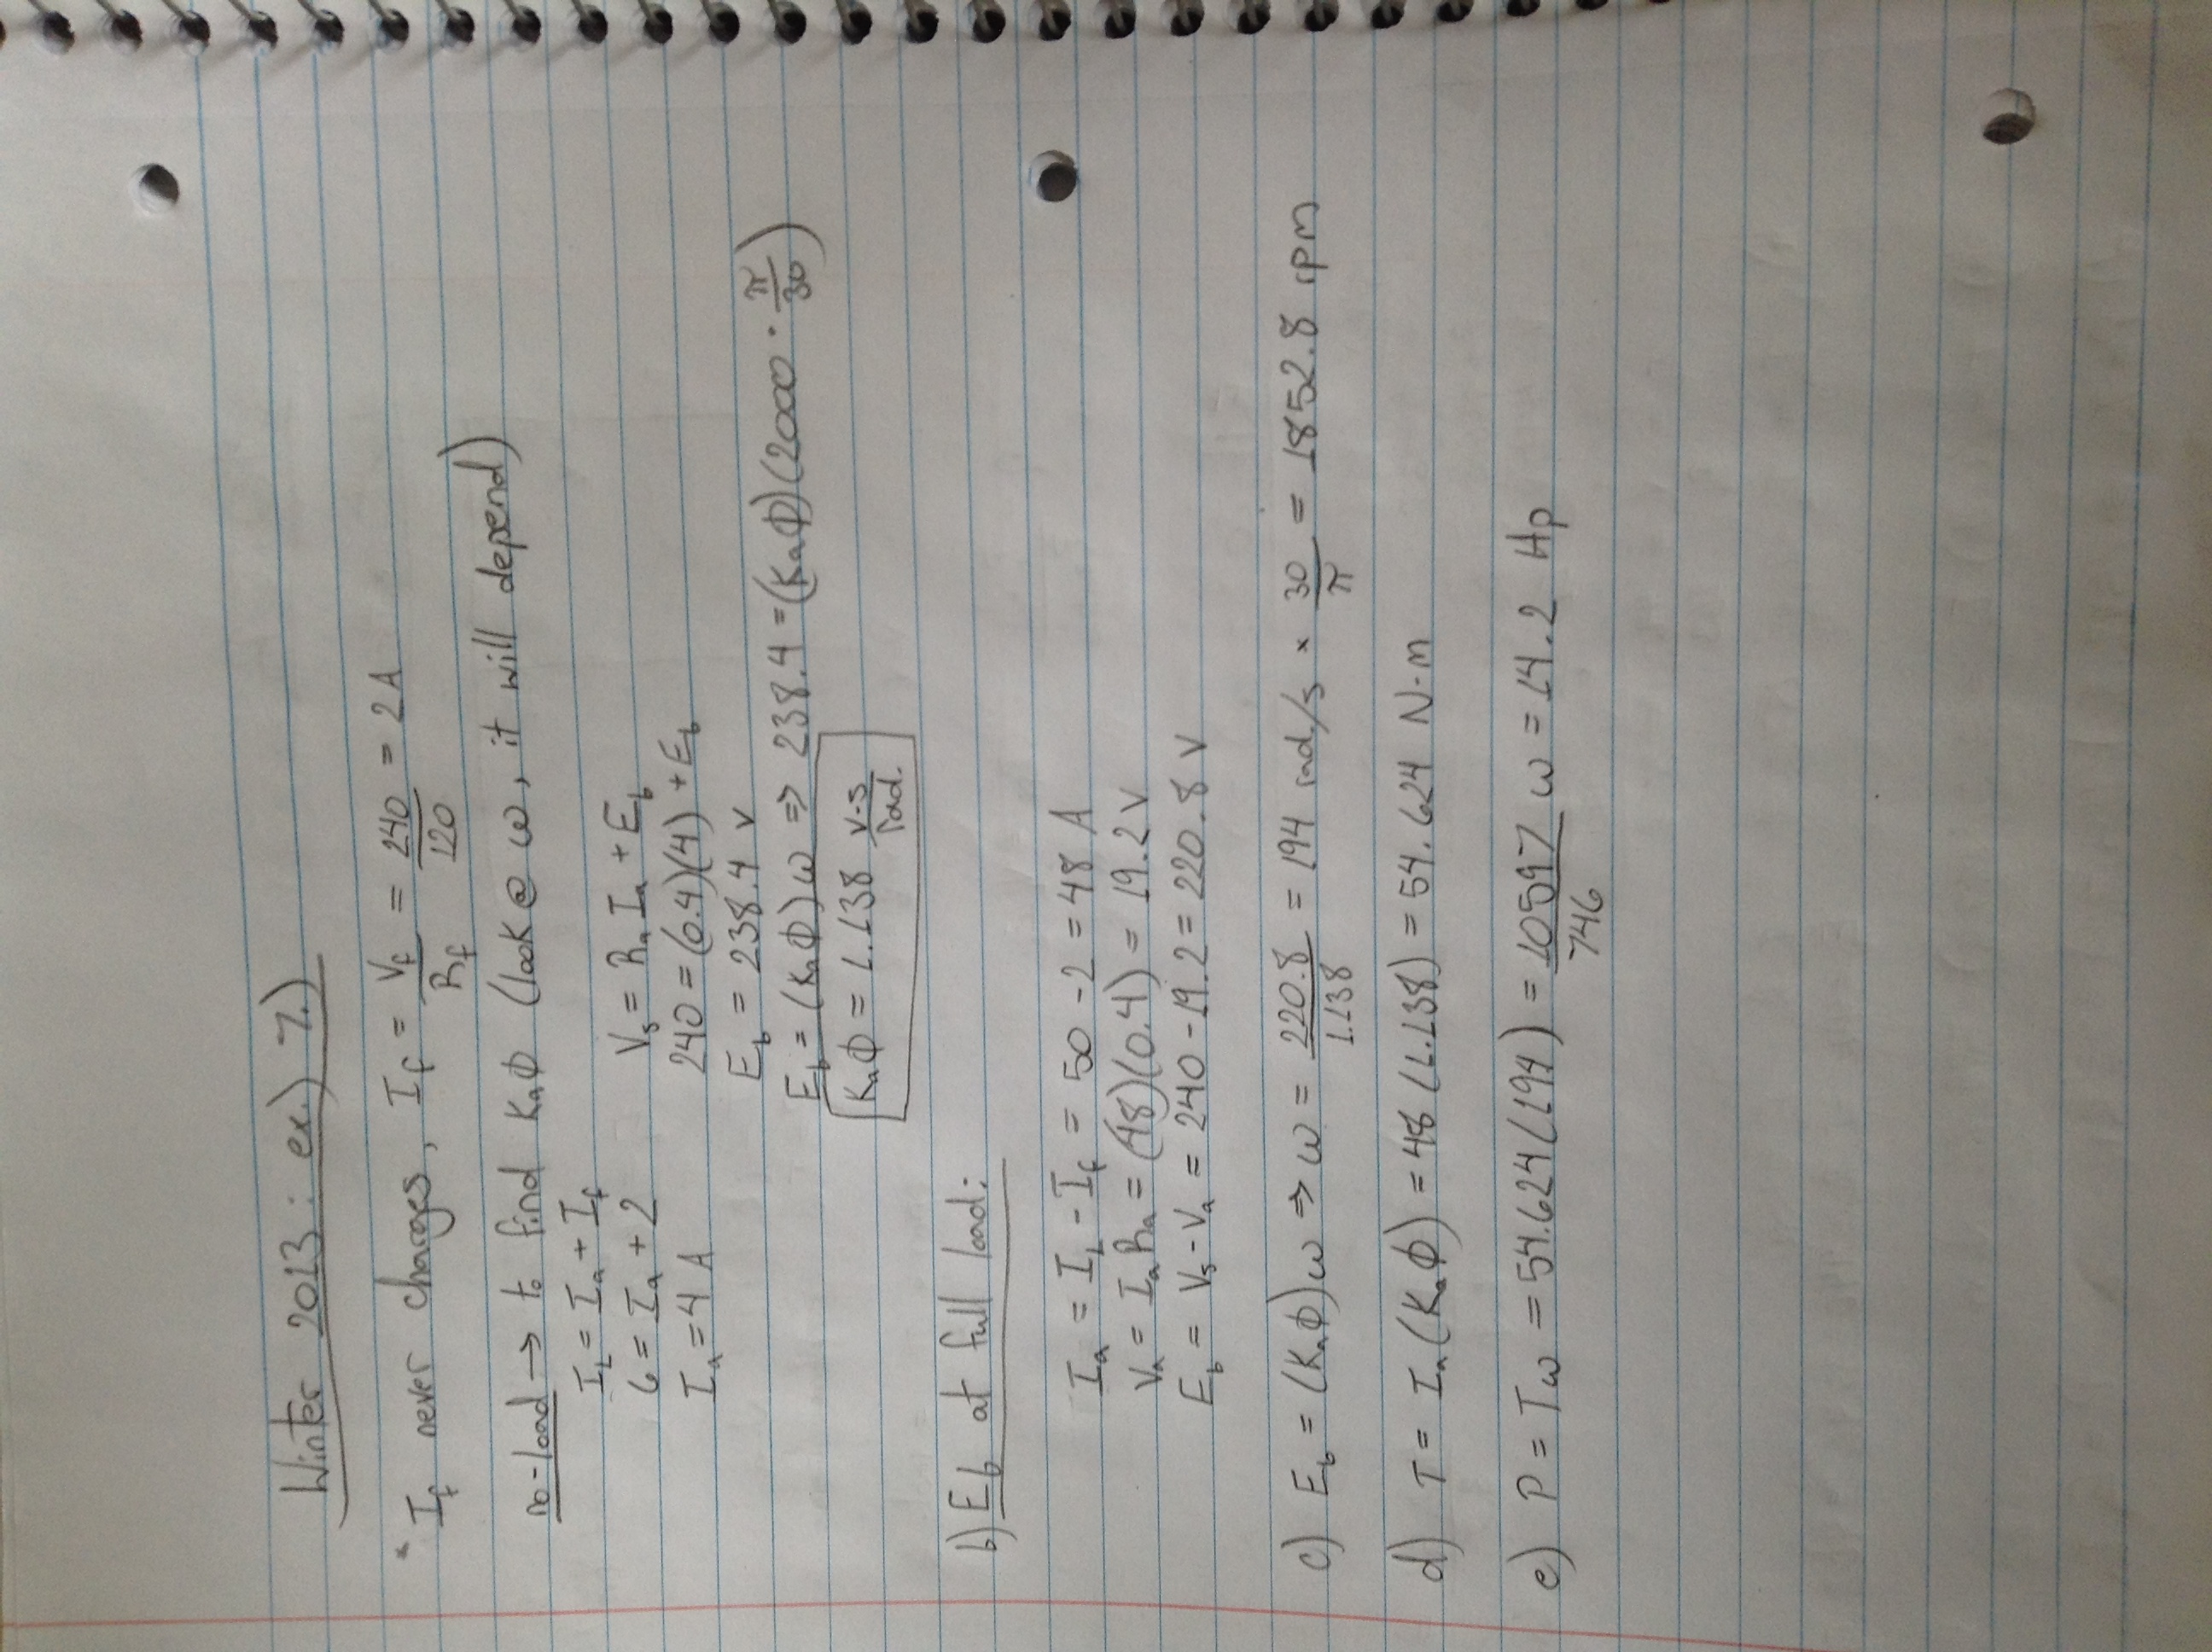 Winter 2013 : ex.) 7.)
* If never changes, If = Vf / Rf = 240 / 120 = 2 A
no-load → to find KaΦ (look @ ω, it will depend)
IL = Ia + If
6 = Ia + 2
Ia = 4 A
Vs = Ra Ia + Eb
240 = (0.4)(4) + Eb
Eb = 238.4 v
Eb = (KaΦ)ω ⇒ 238.4 = (KaΦ)(2000 · π/30)
KaΦ = 1.138 v-s / rad.
b) Eb at full load:
Ia = IL - If = 50 - 2 = 48 A
Va = Ia Ra = (48)(0.4) = 19.2 V
Eb = Vs - Va = 240 - 19.2 = 220.8 V
c) Eb = (KaΦ)ω ⇒ ω = 220.8 / 1.138 = 194 rad./s × 30 / π = 1852.8 rpm
d) T = Ia (KaΦ) = 48 (1.138) = 54.624 N-m
e) P = Tω = 54.624(194) = 10597 / 746 ω = 14.2 Hp